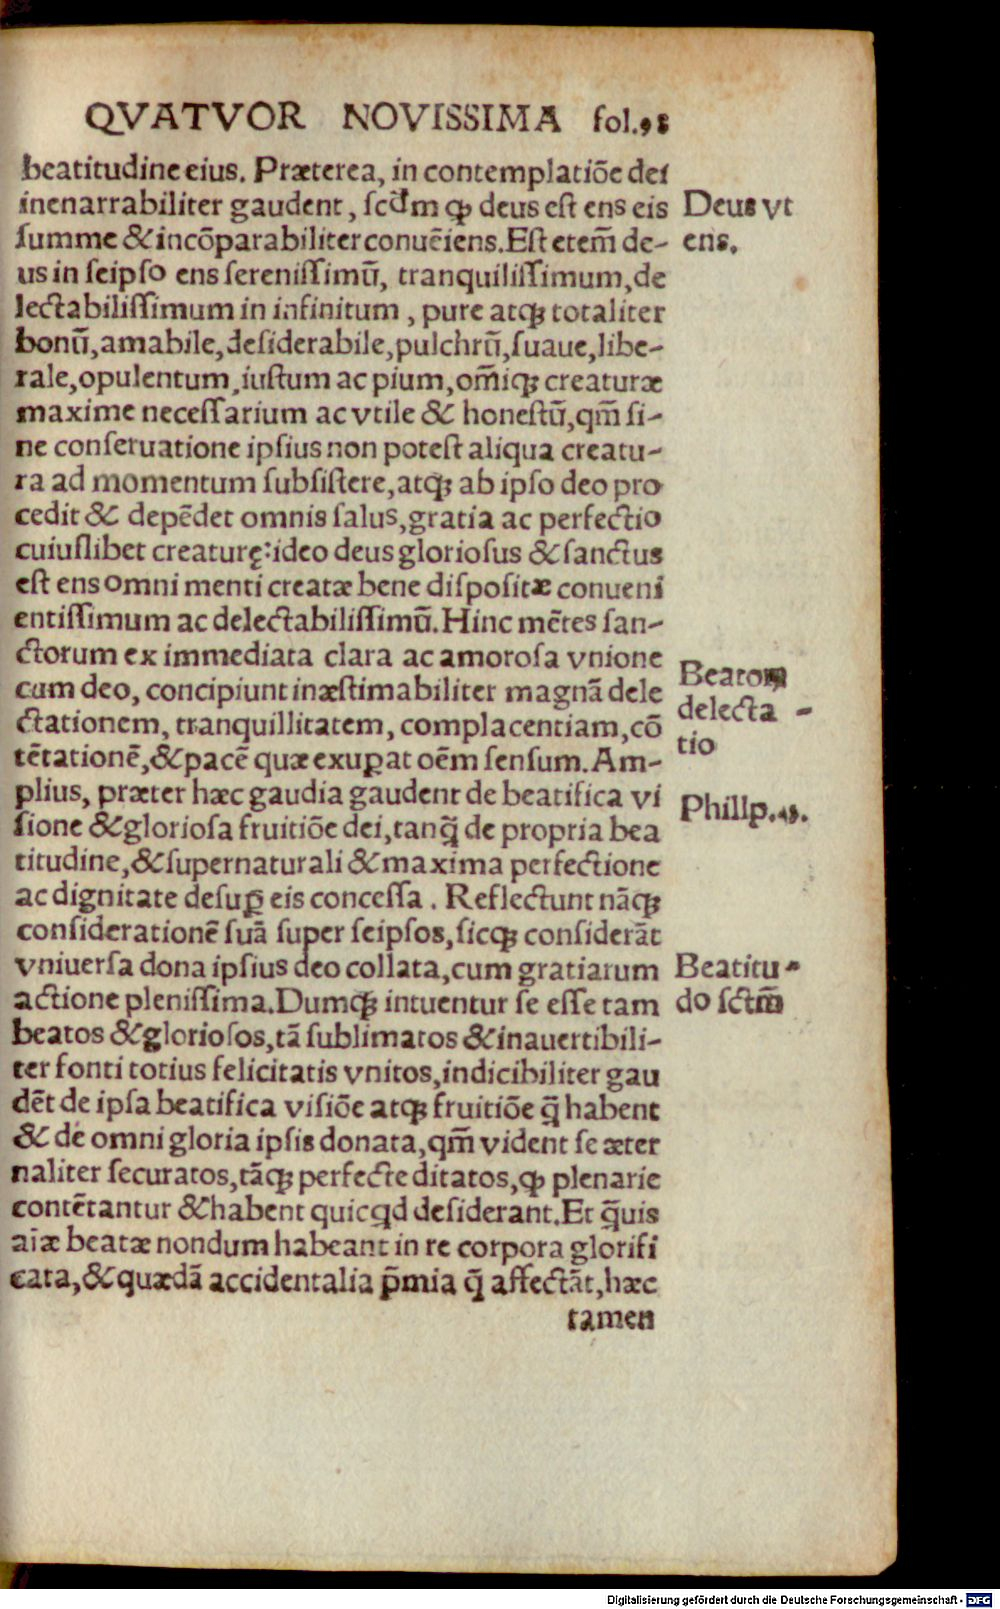 QVATVOR NOVISSIMA fol.98
beatitudine eius. Præterea, in contemplatiõe dei
inenarrabiliter gaudent, ſcďm ꝙ deus eſt ens eis
ſumme & incõparabiliter conuẽiens. Eſt etem̃ de-
us in ſeipſo ens ſereniſſimũ, tranquiliſſimum, de
lectabiliſſimum in infinitum, pure atqꝫ totaliter
bonũ, amabile, deſiderabile, pulchrũ, ſuaue, libe-
rale, opulentum, iuſtum ac pium, om̃iqꝫ creaturæ
maxime neceſſarium ac vtile & honeſtũ, qm̃ ſi-
ne conſeruatione ipſius non poteſt aliqua creatu-
ra ad momentum ſubſiſtere, atqꝫ ab ipſo deo pro
cedit & depẽdet omnis ſalus, gratia ac perfectio
cuiuſlibet creaturę: ideo deus glorioſus & ſanctus
eſt ens omni menti creatæ bene diſpoſitæ conueni
entiſſimum ac delectabiliſſimũ. Hinc mẽtes ſan-
ctorum ex immediata clara ac amoroſa vnione
cum deo, concipiunt inæſtimabiliter magnã dele
ctationem, tranquillitatem, complacentiam, cõ
tẽtationẽ, & pacẽ quæ exuꝑat oẽm ſenſum. Am-
plius, præter hæc gaudia gaudent de beatifica vi
ſione & glorioſa fruitiõe dei, tanq̃ de propria bea
titudine, & ſupernaturali & maxima perfectione
ac dignitate deſuꝑ eis conceſſa. Reflectunt nãqꝫ
conſiderationẽ ſuã ſuper ſeipſos, ſicqꝫ conſiderãt
vniuerſa dona ipſius deo collata, cum gratiarum
actione pleniſſima. Dumqꝫ intuentur ſe eſſe tam
beatos & glorioſos, tã ſublimatos & inauertibili-
ter fonti totius felicitatis vnitos, indicibiliter gau
dẽt de ipſa beatifica viſiõe atqꝫ fruitiõe q̃ habent
& de omni gloria ipſis donata, qm̃ vident ſe æter
naliter ſecuratos, tãqꝫ perfecte ditatos, ꝙ plenarie
contẽtantur & habent quicq̃d deſiderant. Et q̃uis
aĩæ beatæ nondum habeant in re corpora glorifi
cata, & quædã accidentalia p̃mia q̃ affectãt, hæc
tamen
Deus vt
ens.
Beatoꝝ
delecta-
tio
Phillp.4.
Beatitu-
do ſctm̃
Digitalisierung gefördert durch die Deutsche Forschungsgemeinschaft - DFG